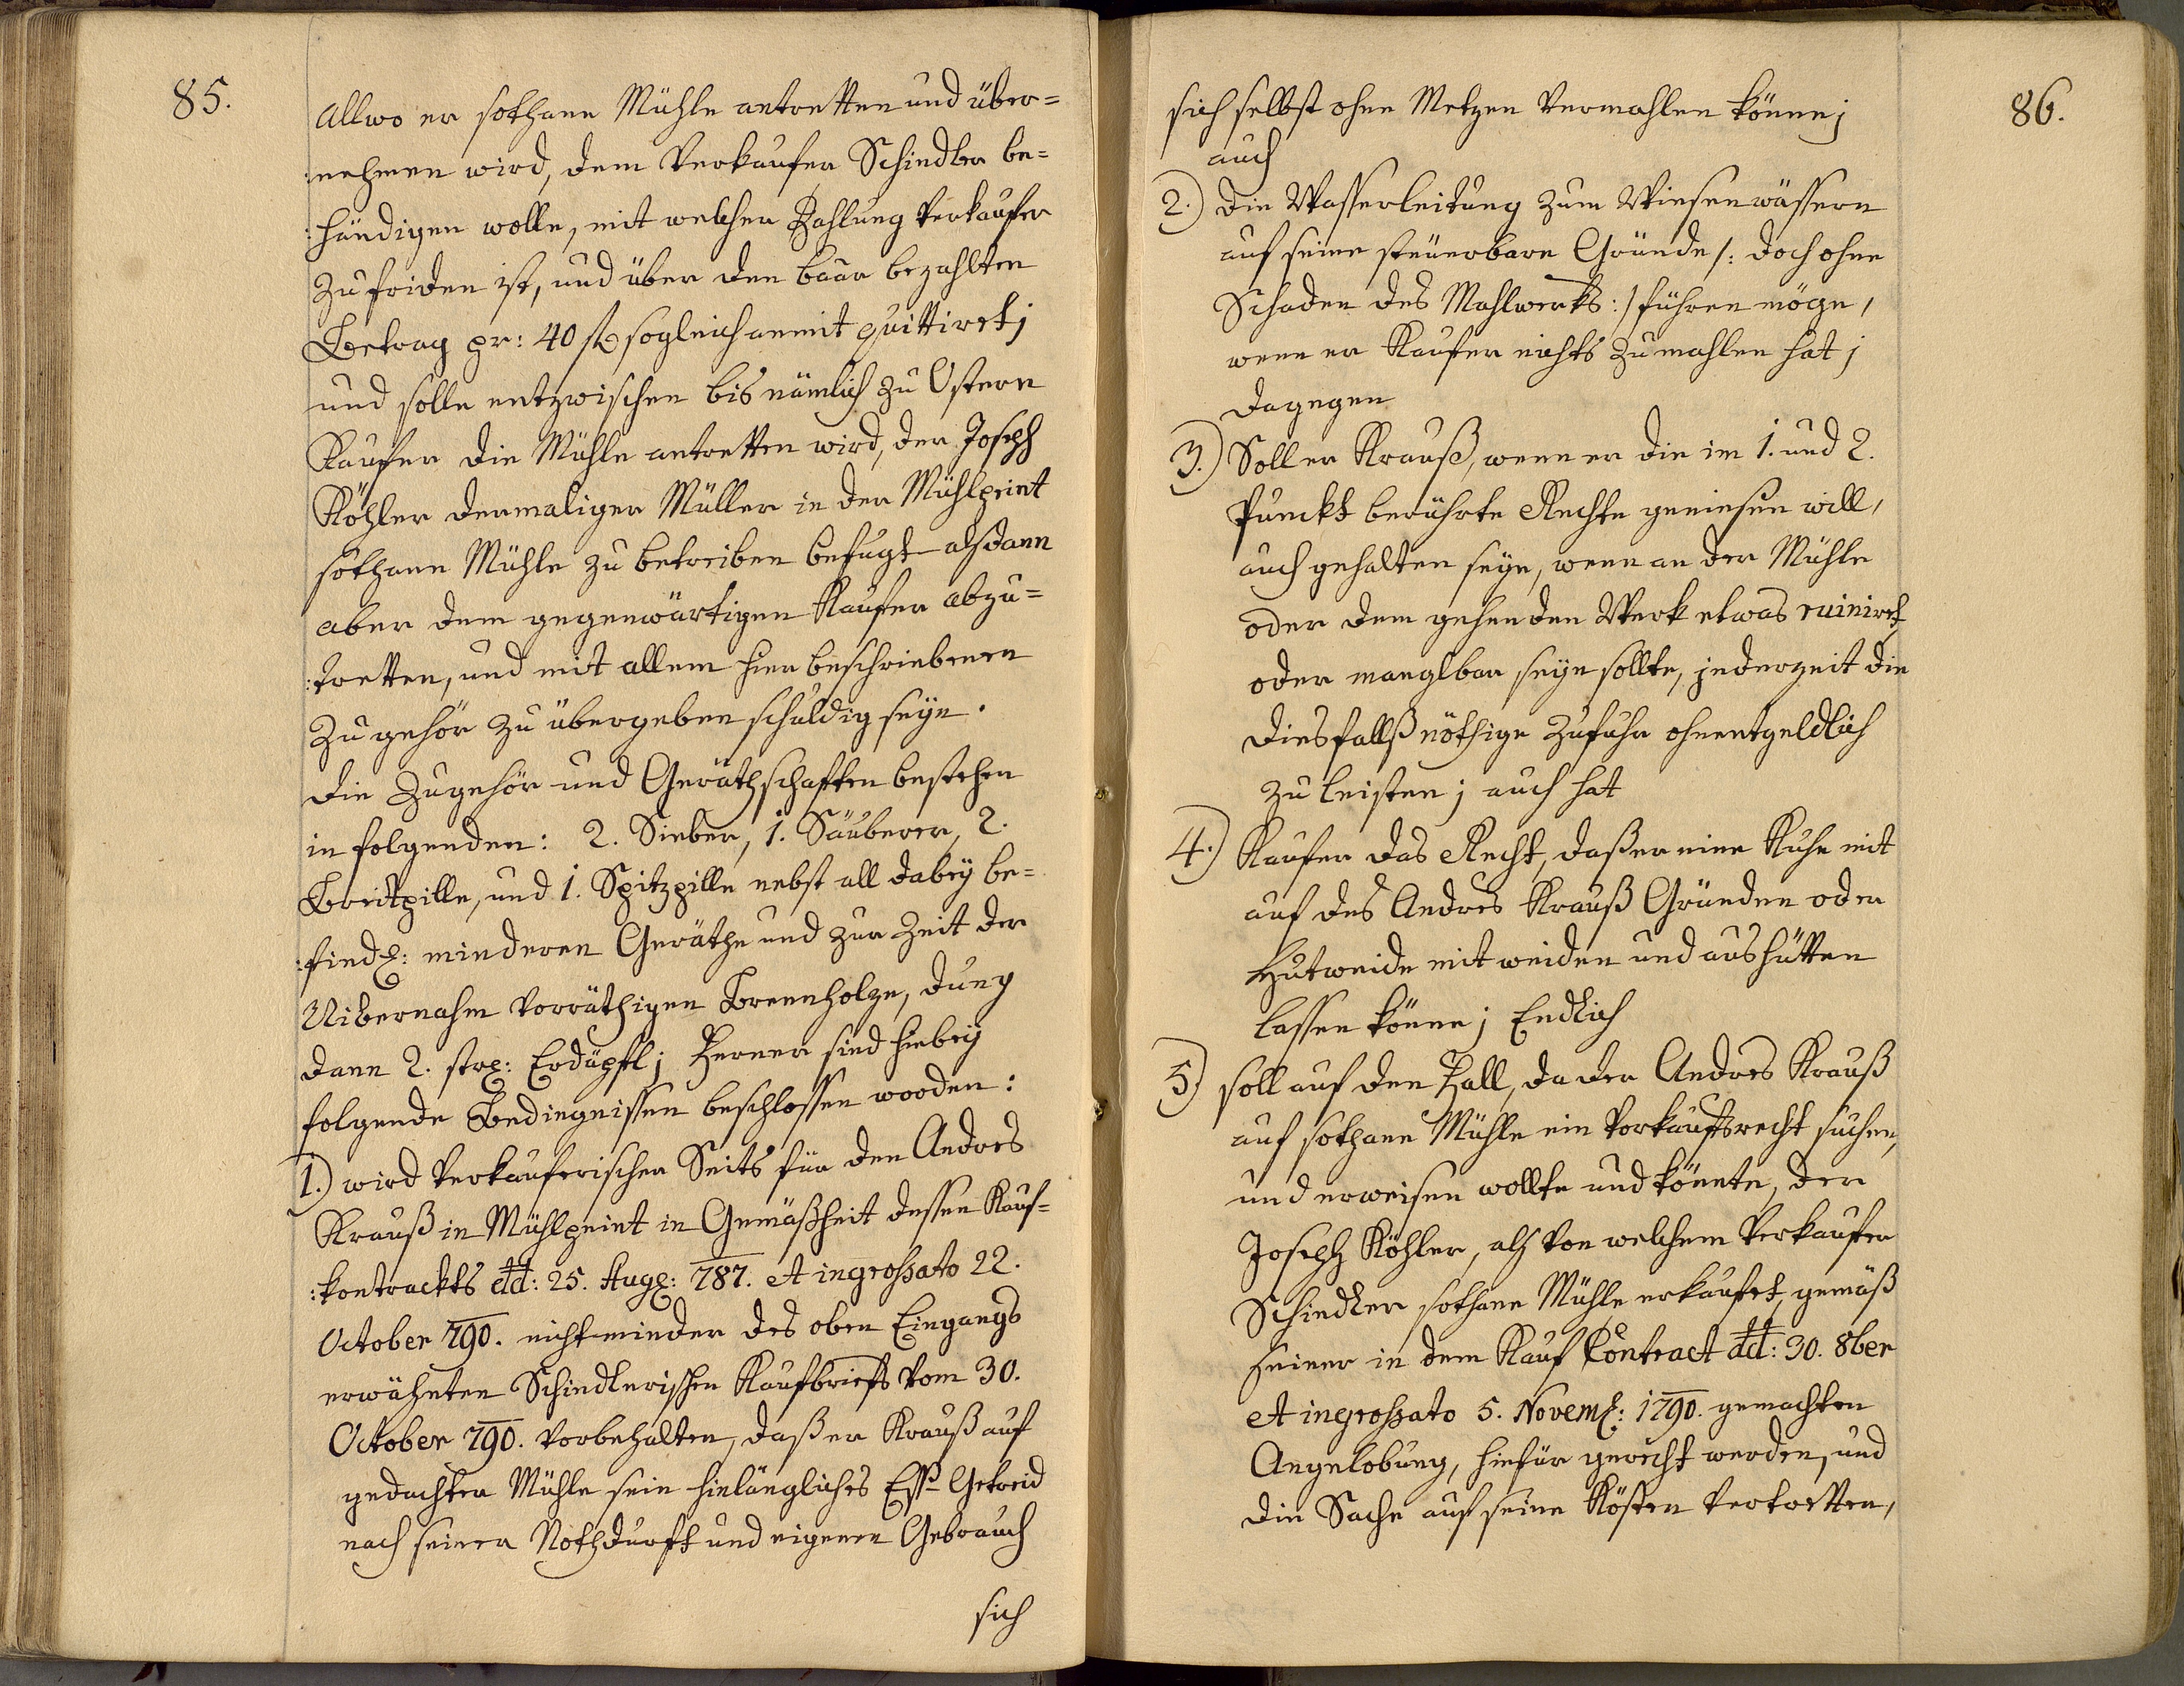 85.
allwo er sothane Mühle antretten und über=
:nehmen wird, dem Verkaufer Schindler be=
:händigen wolle, mit welcher Zahlung Verkaufer
zufriden ist, und über den baar bezahlten
Betrag pr: 40 f sogleich anmit quittiret;
und solle entzwischen bis nämlich zu Ostern
Kaufer die Mühle antretten wird, der Joseph
Köhler dermaliger Müller in der Mühlpeint
sothane Mühle zu betreiben befugt alsdann
aber dem gegenwärtigen Kaufer abzu=
:tretten, und mit allem hier beschriebenen
Zugehör zu übergeben schuldig seÿn.
Die Zugehör und Geräthschaften bestehen
in folgenden: 2. Sieber, 1. Säuberer, 2.
Breitpille, und 1. Spitzpille nebst all dabeÿ be=
:findl: minderen Geräthe und zur Zeit der
Uibernahm vorräthigen Brennholze, Dung
dann 2. str: Erdäpfl; Ferner sind hiebeÿ
folgende Bedingnissen beschlossen worden:
1.) wird Verkauferischer Seits für den Andres
Krauß in Mühlpeint in Gemäßheit dessen Kauf=
:kontrackts dd: 25. Aug: 787. et ingrossato 22.
October 790. nicht minder des oben Eingangs
erwähnten Schindlerischen Kaufbriefs vom 30.
October 790. vorbehalten, daß er Krauß auf
gedachter Mühle sein hinlängliches Eß= Getreid
nach seiner Nothdurft und eigenen Gebrauch
sich
86.
sich selbst ohne Metzen vermahlen könne;
auch
2.) die Wasserleitung zum Wiesenwässern
auf seine steuerbare Gründe /: doch ohne
Schaden des Mahlwerks :/ führen möge,
wenn er Kaufer nichts zu mahlen hat;
dagegen
3.) Soll er Krauß, wenn er die im 1. und 2.
Punckt berührte Rechte geniesen will,
auch gehalten seÿn, wenn an der Mühle
oder dem gehenden Werk etwas ruiniret,
oder manglbar seÿn sollte, jederzeit die
diesfallß nöthige Zufuhr ohnentgeldlich
zu leisten; auch hat
4.) Kaufer das Recht, daß er eine Kuhe mit
auf des Andres Krauß Gründen oder
Hutweide mit weiden und aushütten
lassen könne; Endlich
5.) soll auf den Fall, da der Andres Krauß
auf sothane Mühle ein Vorkaufsrecht suchen,
und erweisen wollte und könnte, der
Joseph Köhler, als von welchem Verkaufer
Schindler sothane Mühle erkaufet, gemäß
seiner in dem Kauf Contract dd: 30. 8ber
et ingrossato 5. Novem: 1790. gemachten
Angelobung, hiefür gerecht werden, und
die Sache auf seine Kösten vertretten,